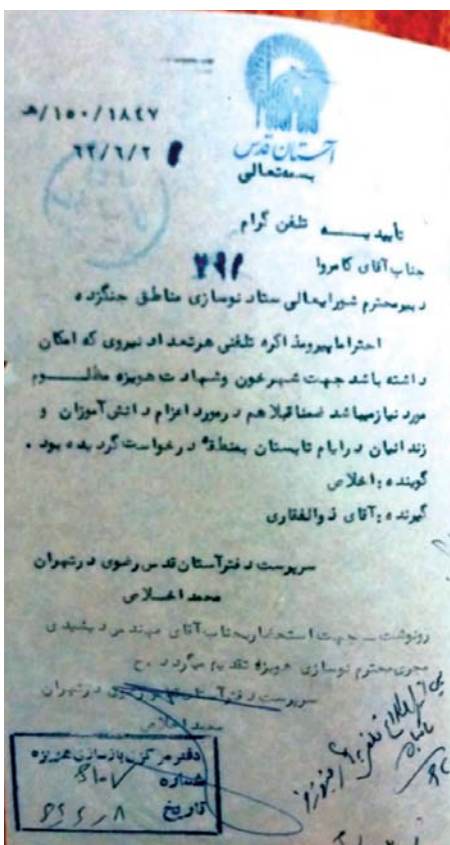 ۱۸۴۷/۱۵۰/هـ
۶۲/۶/۲
آستان قدس
بسمه تعالی
تأییدیه تلفن گرام
جناب آقای کامروا
دبیر محترم شورایعالی ستاد نوسازی مناطق جنگزده
احتراما پیرو مذاکره تلفنی هر تعداد نیروی که امکان
داشته باشد جهت شهر خون و شهادت هویزه مظلوم
مورد نیاز میباشد ضمنا قبلا هم در مورد اعزام دانش آموزان و
زندانیان در ایام تابستان بمنطقه درخواست گردیده بود .
گوینده : اخلاص
گیرنده : آقای ذوالفقاری
سرپرست دفتر آستان قدس رضوی در تهران
محمد اخلاص
رونوشت ـ جهت استحضار بجناب آقای مهندس
مجری محترم نوسازی هویزه تقدیم میگردد . ح
سرپرست دفتر آستان قدس رضوی در تهران
محمد اخلاص
دفتر مرکزی بازسازی هویزه
شماره
تاریخ